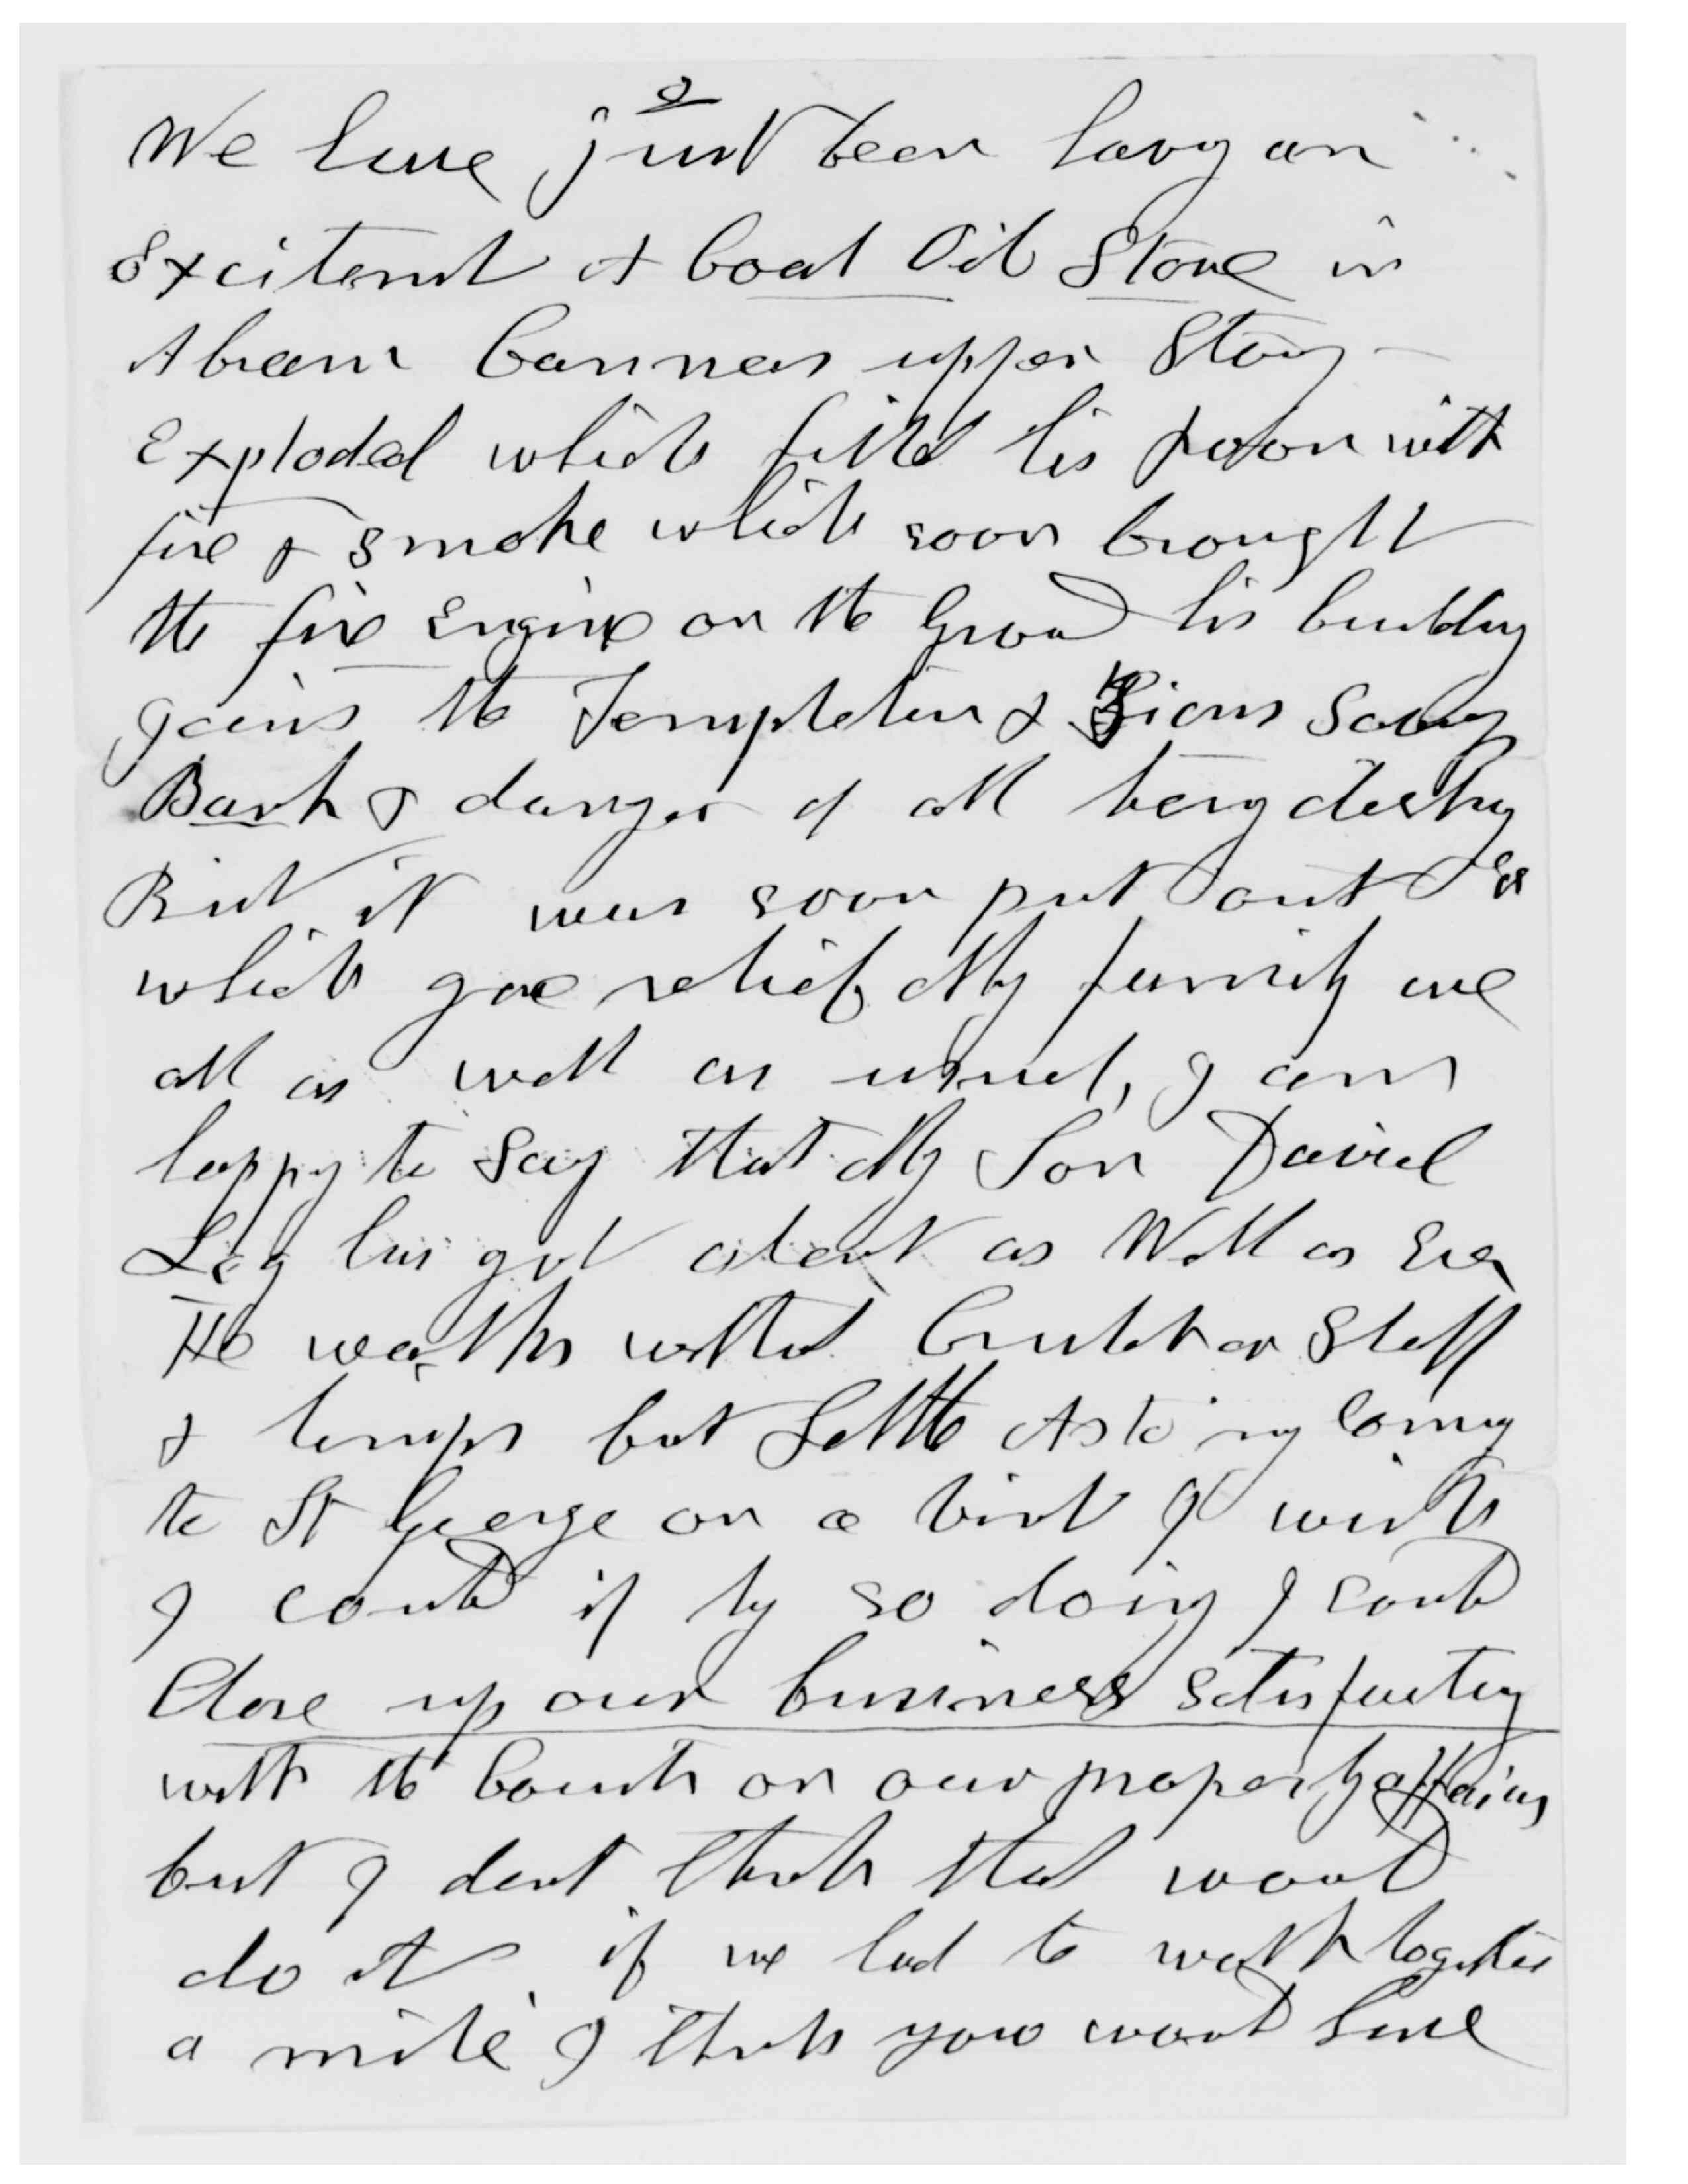 2
We have just been havg an
Excitemt A Coal Oil Stove in
Abram Cannons upper Story
Exploded which filld his Room with
fire & smoke which soon brought
the fire Engine on the Ground his building
joins the Templeton & Zions Saving
Bank & danger of all being destroy
But it was soon put out
which gave relief My family are
all as well as usual, I am
happy to Say that My Son David
Leg has got about as Well as Ever
He walks without Crutch or Staff
& limps but Little As to my coming
to St George on a visit I wish
I could if by so doing I could
Close up our business satisfactory
with the Court on our property affairs
but I dont think that would
do it if we had to walk together
a mile I think you would have